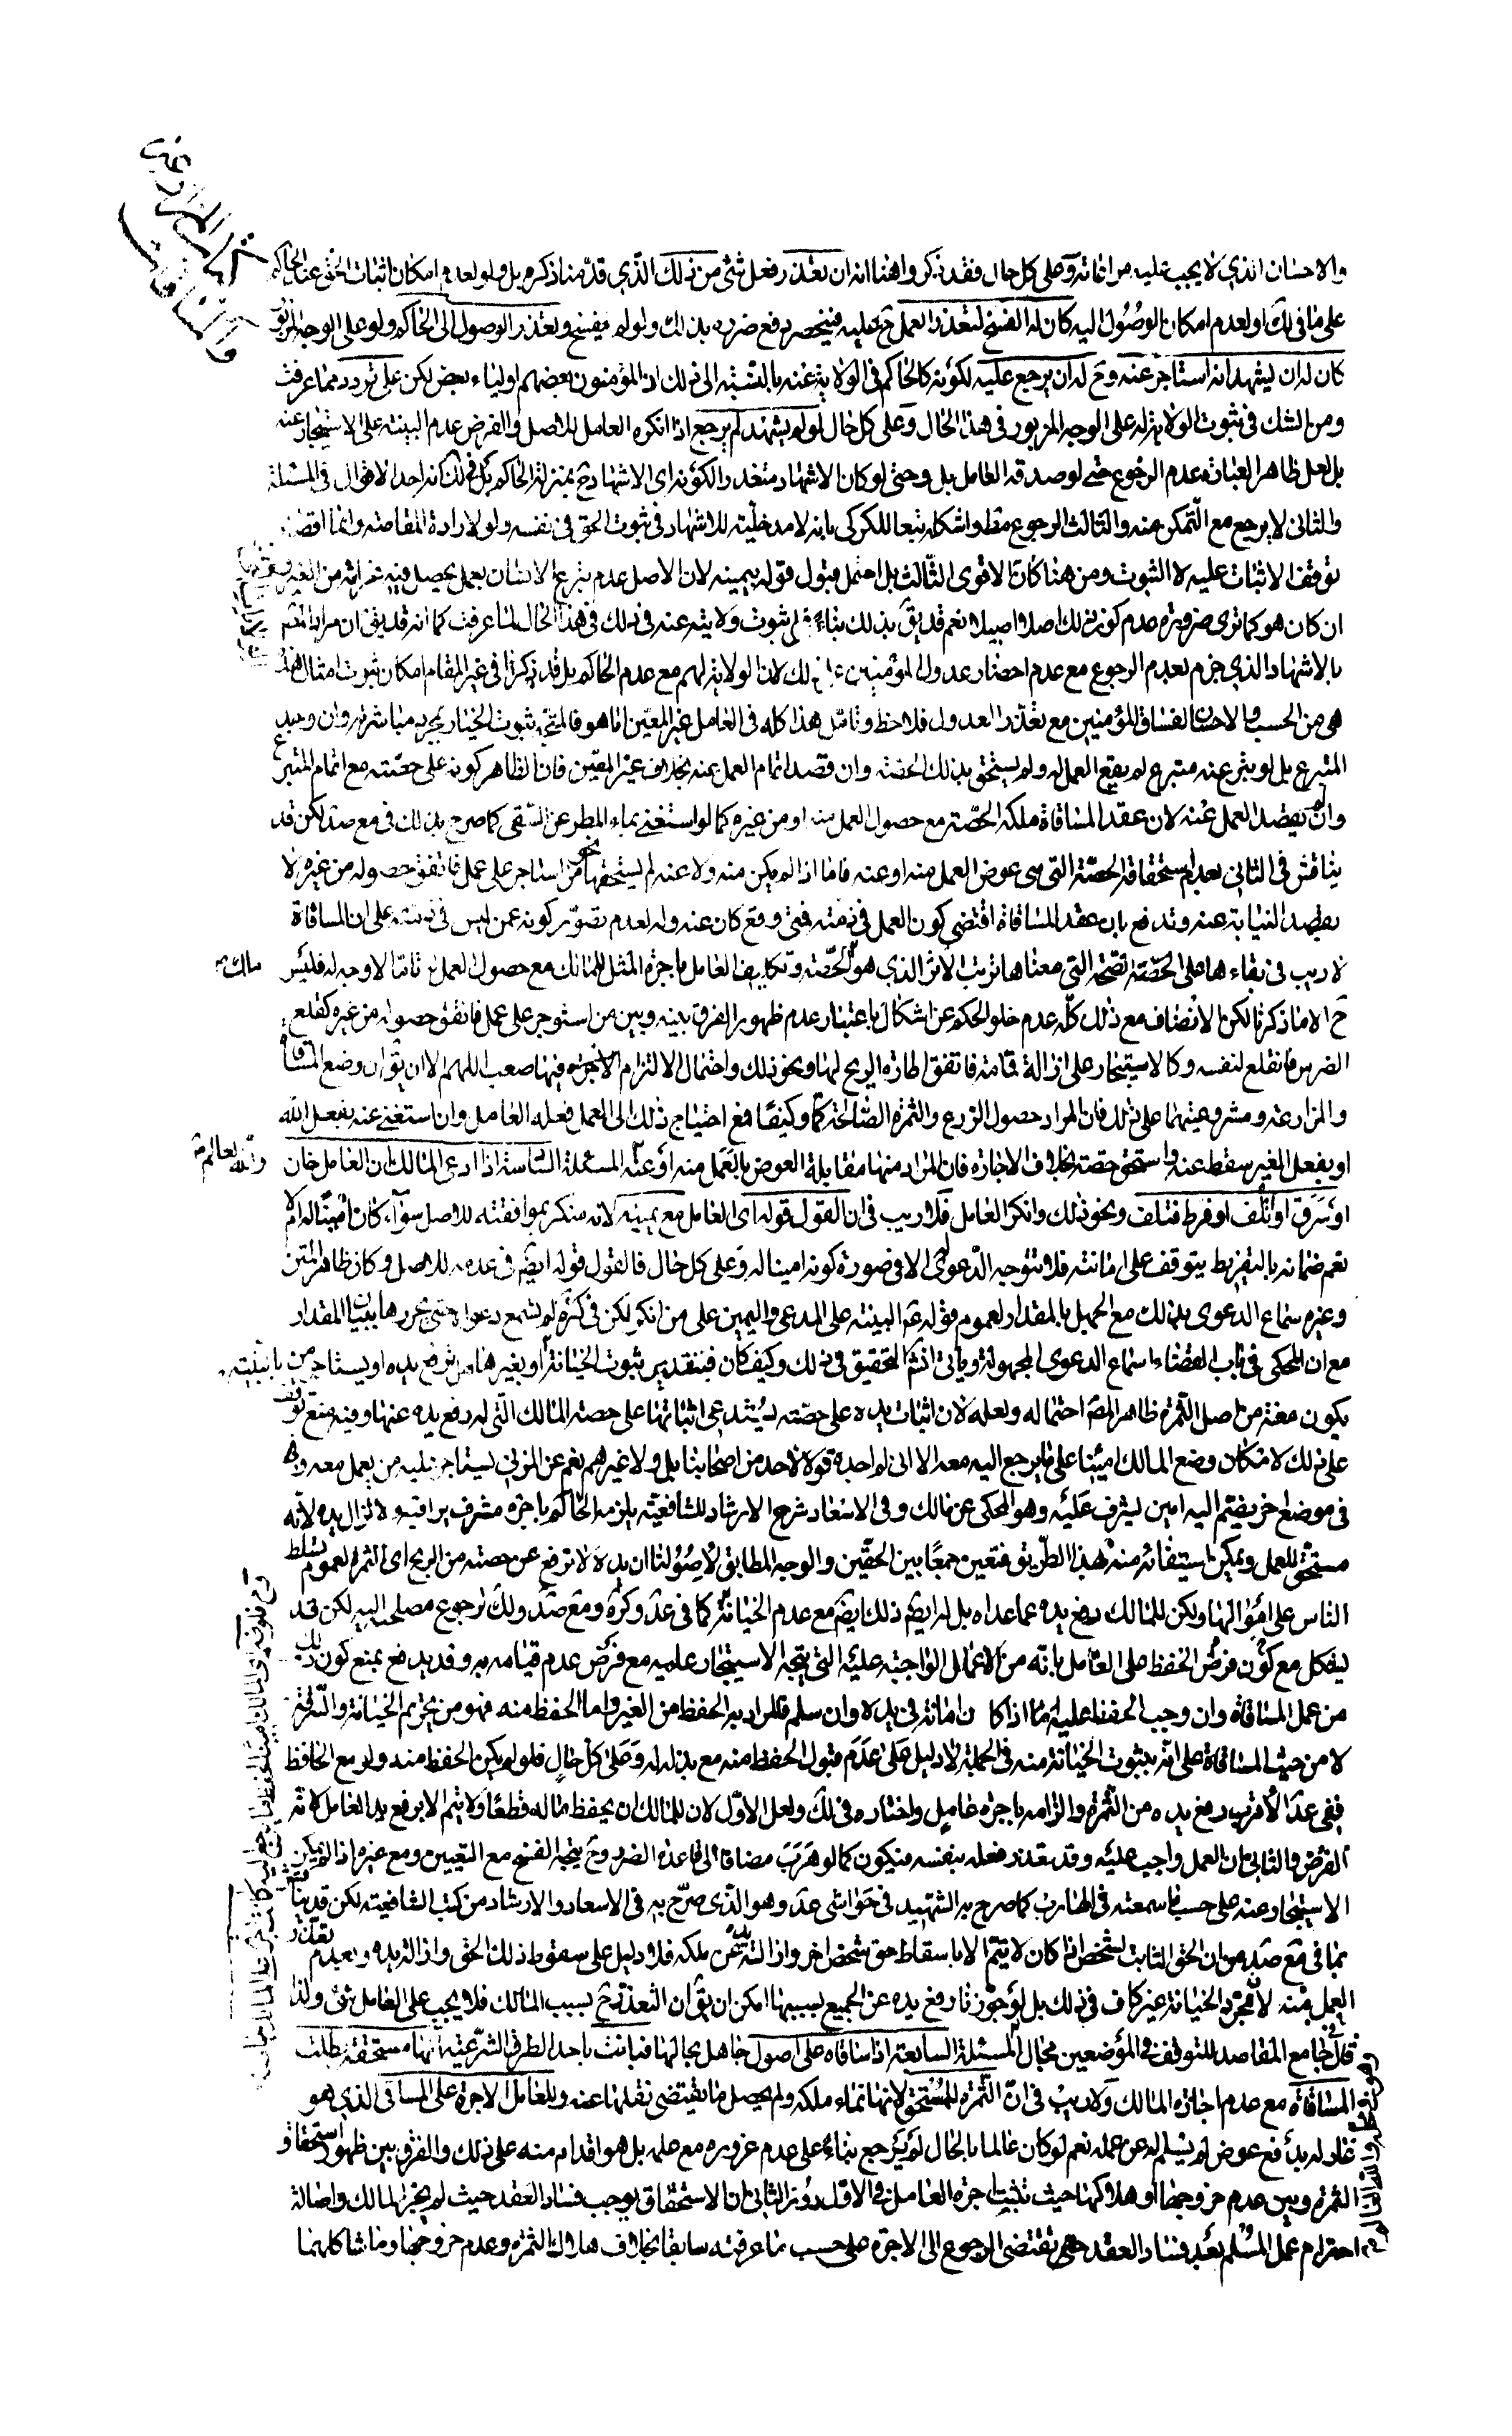 كتاب المزارعة
والمساقات
والاحسان الذي لا يجب عليه مراعاته وعلى كل حال فقد ذكروا هنا انه ان تعذر فعل شئ من ذلك الذي قدمنا ذكره بل ولو لعدم امكان اثبات الحق عند الحاكم
على ما في لك او لعدم امكان الوصول اليه كان له الفسخ لتعذر العمل ح عليه فينحصر دفع ضرره بذلك ولو لم يفسخ وتعذر الوصول الى الحاكم ولو على الوجه المزبور
كان له ان يشهد انه استاجر عنه وح له ان يرجع عليه لكونه كالحاكم في الولاية عنه بالنسبة الى ذلك اذ المؤمنون بعضهم اولياء بعض لكن على تردد مما عرفت
ومن الشك في ثبوت الولاية له على الوجه المزبور في هذا الحال وعلى كل حال لو لم يشهد لم يرجع اذا انكره العامل للاصل والفرض عدم البينة على الاستيجار عنه
بل لعل ظاهر العبارة عدم الرجوع حتى لو صدقه العامل بل وحتى لو كان الاشهاد متعذرا لكونه اى الاشهاد ح بمنزلة الحاكم في ذلك كانه احد الاقوال في المسئلة
والثاني لا يرجع مع التمكن منه والثالث الرجوع مط واشكله تبعا للكركي بانه لا مدخلية للاشهاد في ثبوت الحق في نفسه ولو لارادة المقاصة وانما اقصاه
توقف الاثبات عليه لا الثبوت ومن هنا كان الاقوى الثالث بل احتمل قبول قوله بيمينه لان الاصل عدم تبرع الانسان بعمل يحصل فيه غرامة من الغير
ان كان هو كما ترى ضرورة عدم كون ذلك اصلا اصيلا نعم قد يق بذلك بناء على ثبوت ولايته عنه في ذلك في هذا الحال لما عرفت كما انه قد يق ان مراد المصنف
بالاشهاد الذي جزم بعدم الرجوع مع عدم احضار عدول المؤمنين في ذلك لان الولاية لهم مع عدم الحاكم بل قد ذكرنا في غير المقام امكان ثبوت امثال هذه
هي من الحسب والاحسان لفساق المؤمنين مع تعذر العدول فلاحظ وتامل هذا كله في العامل غير المعين اما هو فالمتجه ثبوت الخيار بمجرد مباشرته وان وجد
المتبرع بل لو تبرع عنه متبرع لم يقع العمل له ولم يستحق بذلك الحصة وان قصد اتمام العمل عنه بخلاف غير المعين فان الظاهر كونه على حصته مع اتمام المتبرع
وان لم يقصد العمل عنه لان عقد المساقاة ملكه الحصة مع حصول العمل منه او من غيره كما لو استغنى بماء المطر عن السقي كما صرح بذلك في مع صد لكن قد
يناقش في الثاني بعدم استحقاقه الحصة التي هي عوض العمل منه او عنه فاما اذا لم يكن منه ولا عنه لم يستحقها كمن استاجر على عمل فاتفق حصوله من غيره لا
بقصد النيابة عنه وتدفع بان عقد المساقاة اقتضى كون العمل في ذمته فمتى وقع كان عنه وله لعدم تصور كونه عمن ليس في ذمته على ان المساقاة
لا ريب في بقاءها على الحصة الصحة التي معناها ترتب الاثر الذي هو الحصة وتكليف العامل باجرة المثل للمالك مع حصول العمل تاما لا وجه له فليس
ح الا ما ذكرنا لكن الانصاف مع ذلك كله عدم خلو الحكم عن اشكال باعتبار عدم ظهور الفرق بينه وبين من استوجر على عمل فاتفق حصوله من غيره كقلع
الضرس فانقلع لنفسه وكالاستيجار على ازالة قمامة فاتفق اطارة الريح لها ونحو ذلك واحتمال الالتزام بالاجرة فيها صعب اللهم الا ان يق ان وضع المساقاة
والمزارعة ومشروعيتهما على ذلك فان المراد حصول الزرع والثمرة الصالحة كما وكيفا فمع احتياج ذلك الى العمل فعله العامل وان استغنى عنه بفعل الله
او بفعل الغير سقط عنه واستحق حصته بخلاف الاجارة فان المراد منها مقابلة العوض بالعمل منه او عنه المسئلة السادسة اذا ادعى المالك ان العامل خان
والله العالم
او سرق او اتلف او فرط فتلف ونحو ذلك وانكر العامل فلا ريب في ان القول قوله اى العامل مع يمينه لانه منكر بموافقته للاصل سواء كان امينا له ام لا
نعم ضمانه بالتفريط يتوقف على امانته فلا تتوجه الدعوى الا في صورة كونه امينا له وعلى كل حال فالقول قوله ايضا في عدمه للاصل وكان ظاهر المتن
وغيره سماع الدعوى بذلك مع الجهل بالمقدار لعموم قوله ص البينة على المدعى واليمين على من انكر لكن في كره لم تسمع دعواه حتى يحررها ببيان المقدار
مع ان المحكى في باب القضاء سماع الدعوى المجهولة وياتي انش التحقيق في ذلك وكيف كان فبتقدير ثبوت الخيانة او بغيرها هل ترفع يده او يستاجر من
يكون معه من اصل الثمرة ظاهر المص احتماله ولعله لان اثبات يده على حصته يستدعي اثباتها على حصة المالك التي له رفع يده عنها وفيه منع توقف
على ذلك لامكان وضع المالك امينا على ما يرجع اليه معه الا اني لم اجد به قولا لاحد من اصحابنا بل ولا غيرهم نعم عن المزني يستاجر عليه من يعمل معه
في موضع اخر يضم اليه امين يشرف عليه وهو المحكى عن مالك وفي الاسعاد شرح الارشاد للشافعية يلزمه الحاكم باجرة مشرف يراقبه ولا تزال يده لانه
مستحق للعمل ويمكن استيفائه منه بهذا الطريق فتعين جمعا بين الحقين والوجه المطابق لاصولنا ان يده لا ترفع عن حصته من الربح اى الثمرة لعموم تسلط
الناس على اموالها ولكن للمالك رفع يده عما عداه بل له ايضا ذلك ايضا مع عدم الخيانة كما في عد وكره ومع صد ولك لرجوع مصلحة اليه لكن قد
يشكل مع كون فرض الحفظ على العامل بانه من الاعمال الواجبة عليه التي يتجه الاستيجار عليه مع فرض عدم قيامه به وقد يدفع بمنع كون ذلك
من عمل المساقاة وان وجب الحفظ عليه مما اذا كان امانة في يده وان سلم فالمراد به الحفظ من الغير واما الحفظ منه فهو من تحريم الخيانة والسرقة
لا من حيث المساقاة على انه بثبوت الخيانة منه في الجملة لا دليل على عدم قبول الحفظ منه مع بذله له وعلى كل حال فلو لم يكن الحفظ منه ولو مع الحافظ
ففي عد الاقرب رفع يده من الثمرة والزامه باجرة عامل واختاره في لك ولعل الاول لان للمالك ان يحفظ ماله قطعا ولا يتم الا برفع يد العامل لانه
الفرض والثاني لان العمل واجب عليه وقد تعذر فعله بنفسه فيكون كما لو هرب مضافا الى قاعدة الضرر وح يتجه الفسخ مع التعيين ومع غيره اذا لم يمكن
الاستيجار عنه على حسب ما سمعته في الهارب كما صرح به الشهيد في حواشي عد وهو الذي صرح به في الاسعاد والارشاد من كتب الشافعية لكن قد يناقش
بما في مع صد من ان الحق الثابت لشخص اذا كان لا يتم الا باسقاط حق شخص اخر وازالة يده عن ملكه فلا دليل على سقوط ذلك الحق وازالة يده وبعدم تعذر
العمل منه لان مجرد الخيانة غير كاف في ذلك بل لو جوزنا رفع يده عن الجميع بسببها امكن ان يق ان التعذر ح بسبب المالك فلا يجب على العامل شئ ولذا
قال في جامع المقاصد للتوقف في الموضعين مجال المسئلة السابعة اذا ساقاه على اصول جاهل بحالها فبانت باحد الطرق الشرعية انها مستحقة بطلت
المساقاة مع عدم اجازة المالك ولا ريب في ان الثمرة للمستحق لانها نماء ملكه ولم يحصل ما يقتضي نقلها عنه وللعامل الاجرة على المساقي الذي هو
غار له بدفع عوض لم يسلم له عن عمله نعم لو كان عالما بالحال لم يرجع بناء على عدم غروره مع علمه بل هو اقدام منه على ذلك والفرق بين ظهور استحقاق
الثمرة وبين عدم خروجها او هلاكها حيث تثبت اجرة العامل في الاول دون الثاني ان الاستحقاق يوجب فساد العقد حيث لم يجز المالك واصالة
احترام عمل المسلم بعد فساد العقد حتى تقتضي الرجوع الى الاجرة على حسب ما عرفته سابقا بخلاف هلاك الثمرة وعدم خروجها وما شاكلهما